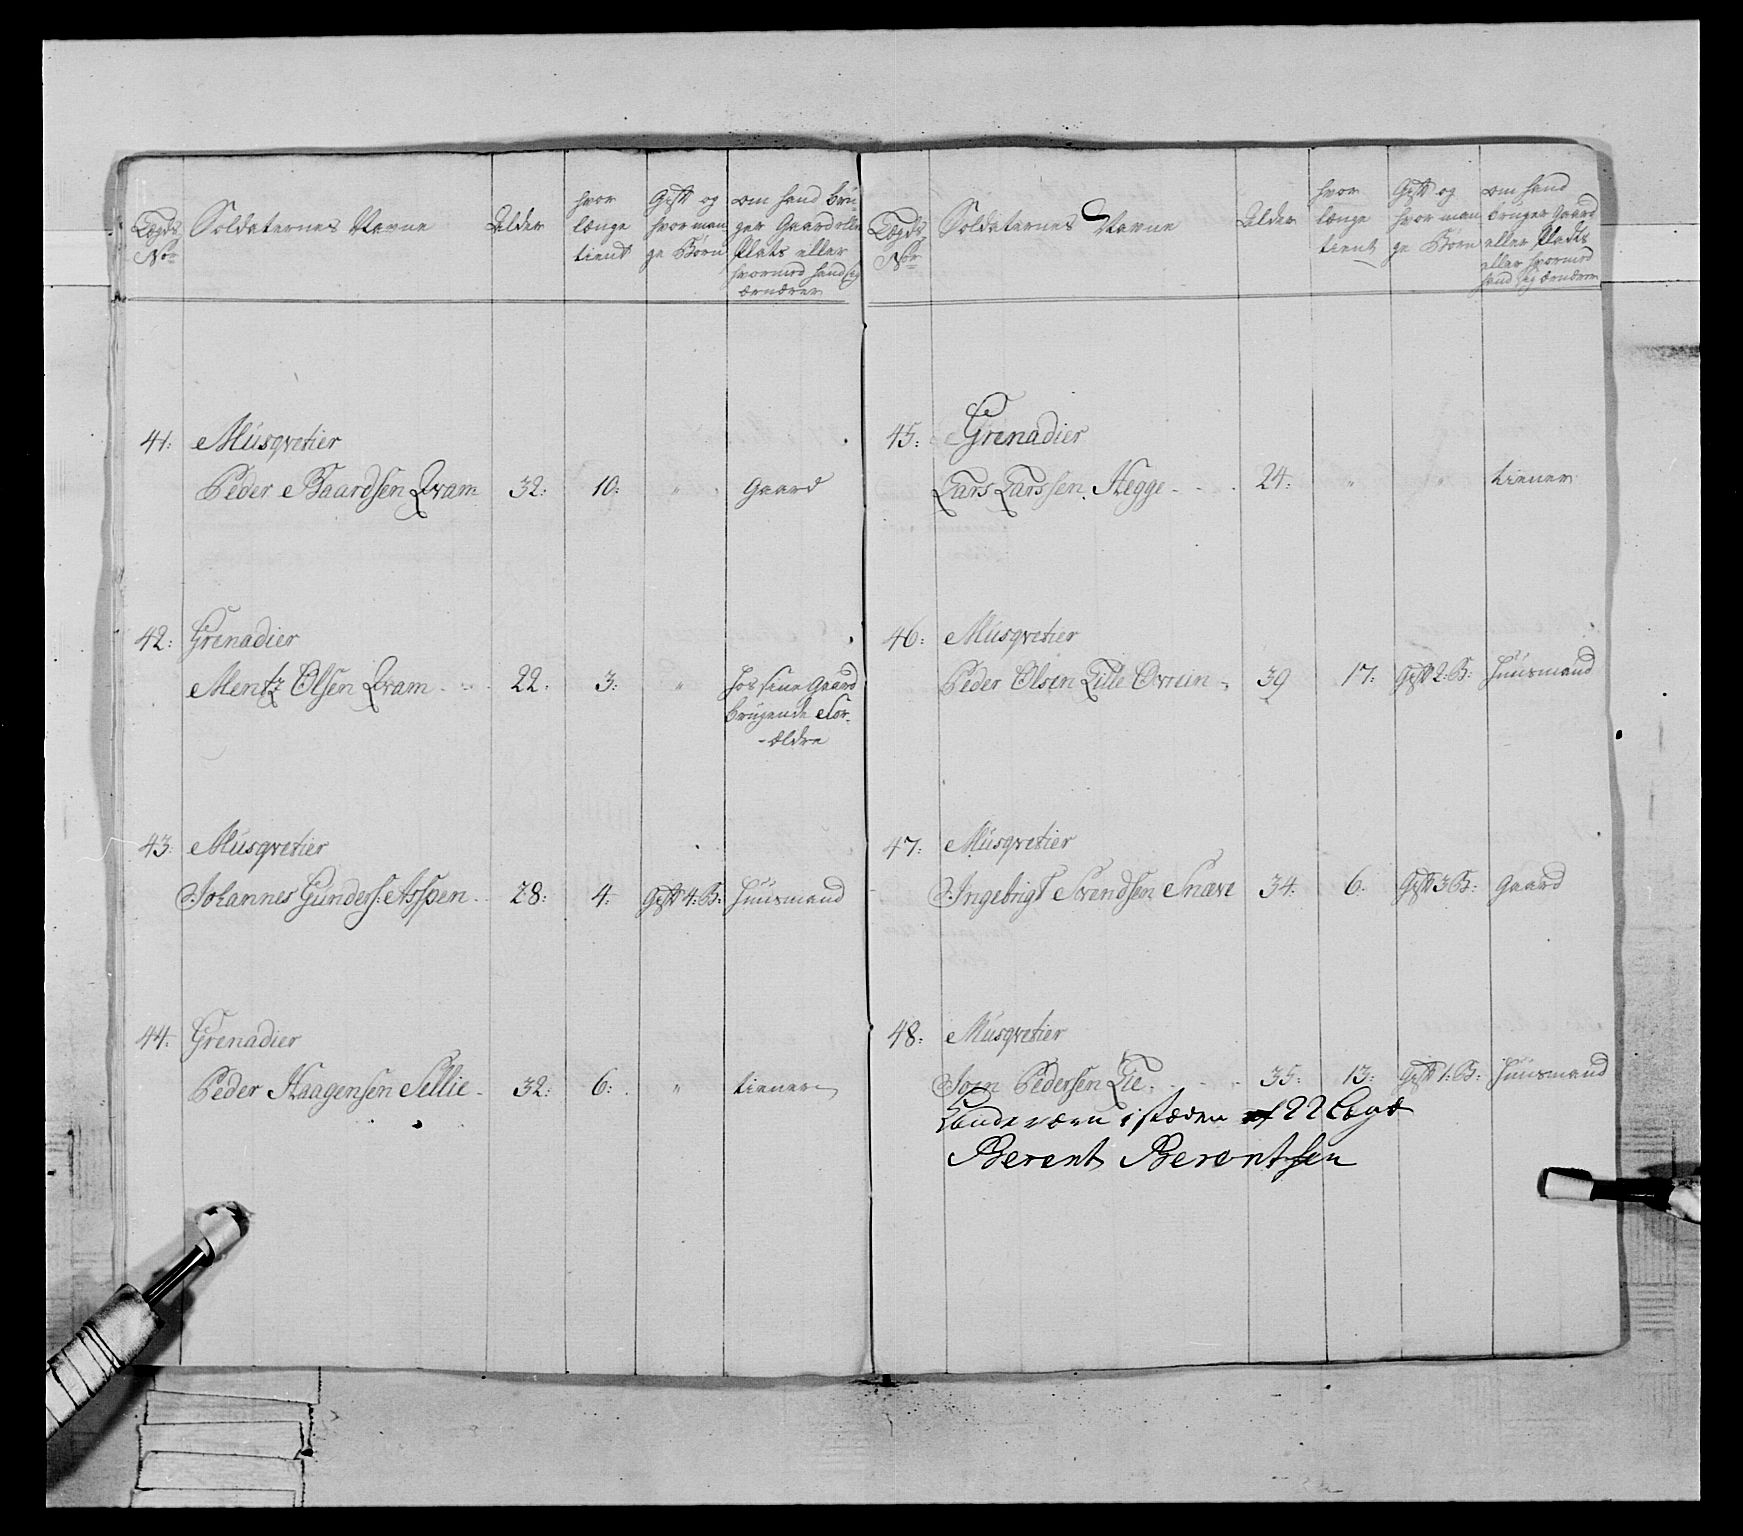 Lægds Nor
Soldaternes Navne
Alder
hvor længe tient
Gift og hvor mange Børn
om hand bruger Gaard eller Plats eller hvormed hand sig ærnærer
41: Musqvetier
Peder Baardsen Qvam 32: 10: " Gaard
42: Grenadier
Mentz Olsen Qvam 22. 3: " hos sine Gaard
brugende For-
-ældre
43: Musqvetier
Johannes Gunders: Asspen 28: 4. Gift 4: B: Huusmand
44: Grenadier
Peder Haagensen Sellie 32: 6: " tiener
Lægds Nor
Soldaternes Navne
Alder
hvor længe tient
Gift og hvor mange Børn
om hand bruger Gaard eller Plads eller hvormed hand sig ærnærer
45: Grenadier
Lars Larssen Hegge 24: " " tiener
46: Musqvetier
Peder Olsen Lille 39 17: Gift 2: B: Huusmand
47: Musqvetier
Ingebrigt Svendsen Snæve 34: 6. Gift 3 B: Gaard
48: Musqvetier
Iven Pedersen Lie 35: 13: Gift 1: B: Huusmand
Landeværn i stæden af 22 Lægd
Berent Berentsen